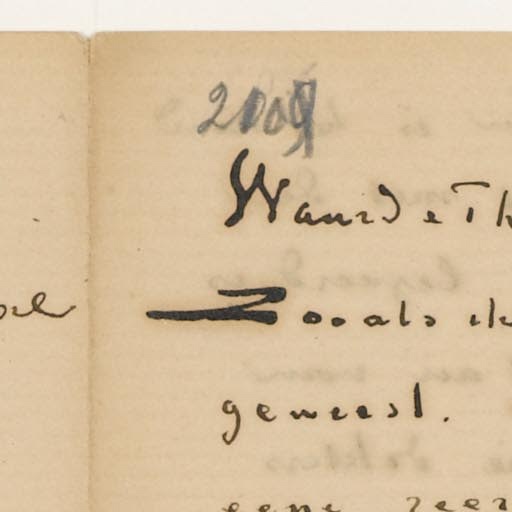 2009
Waarde Th
Zooals ik
geweest.
eene zeer